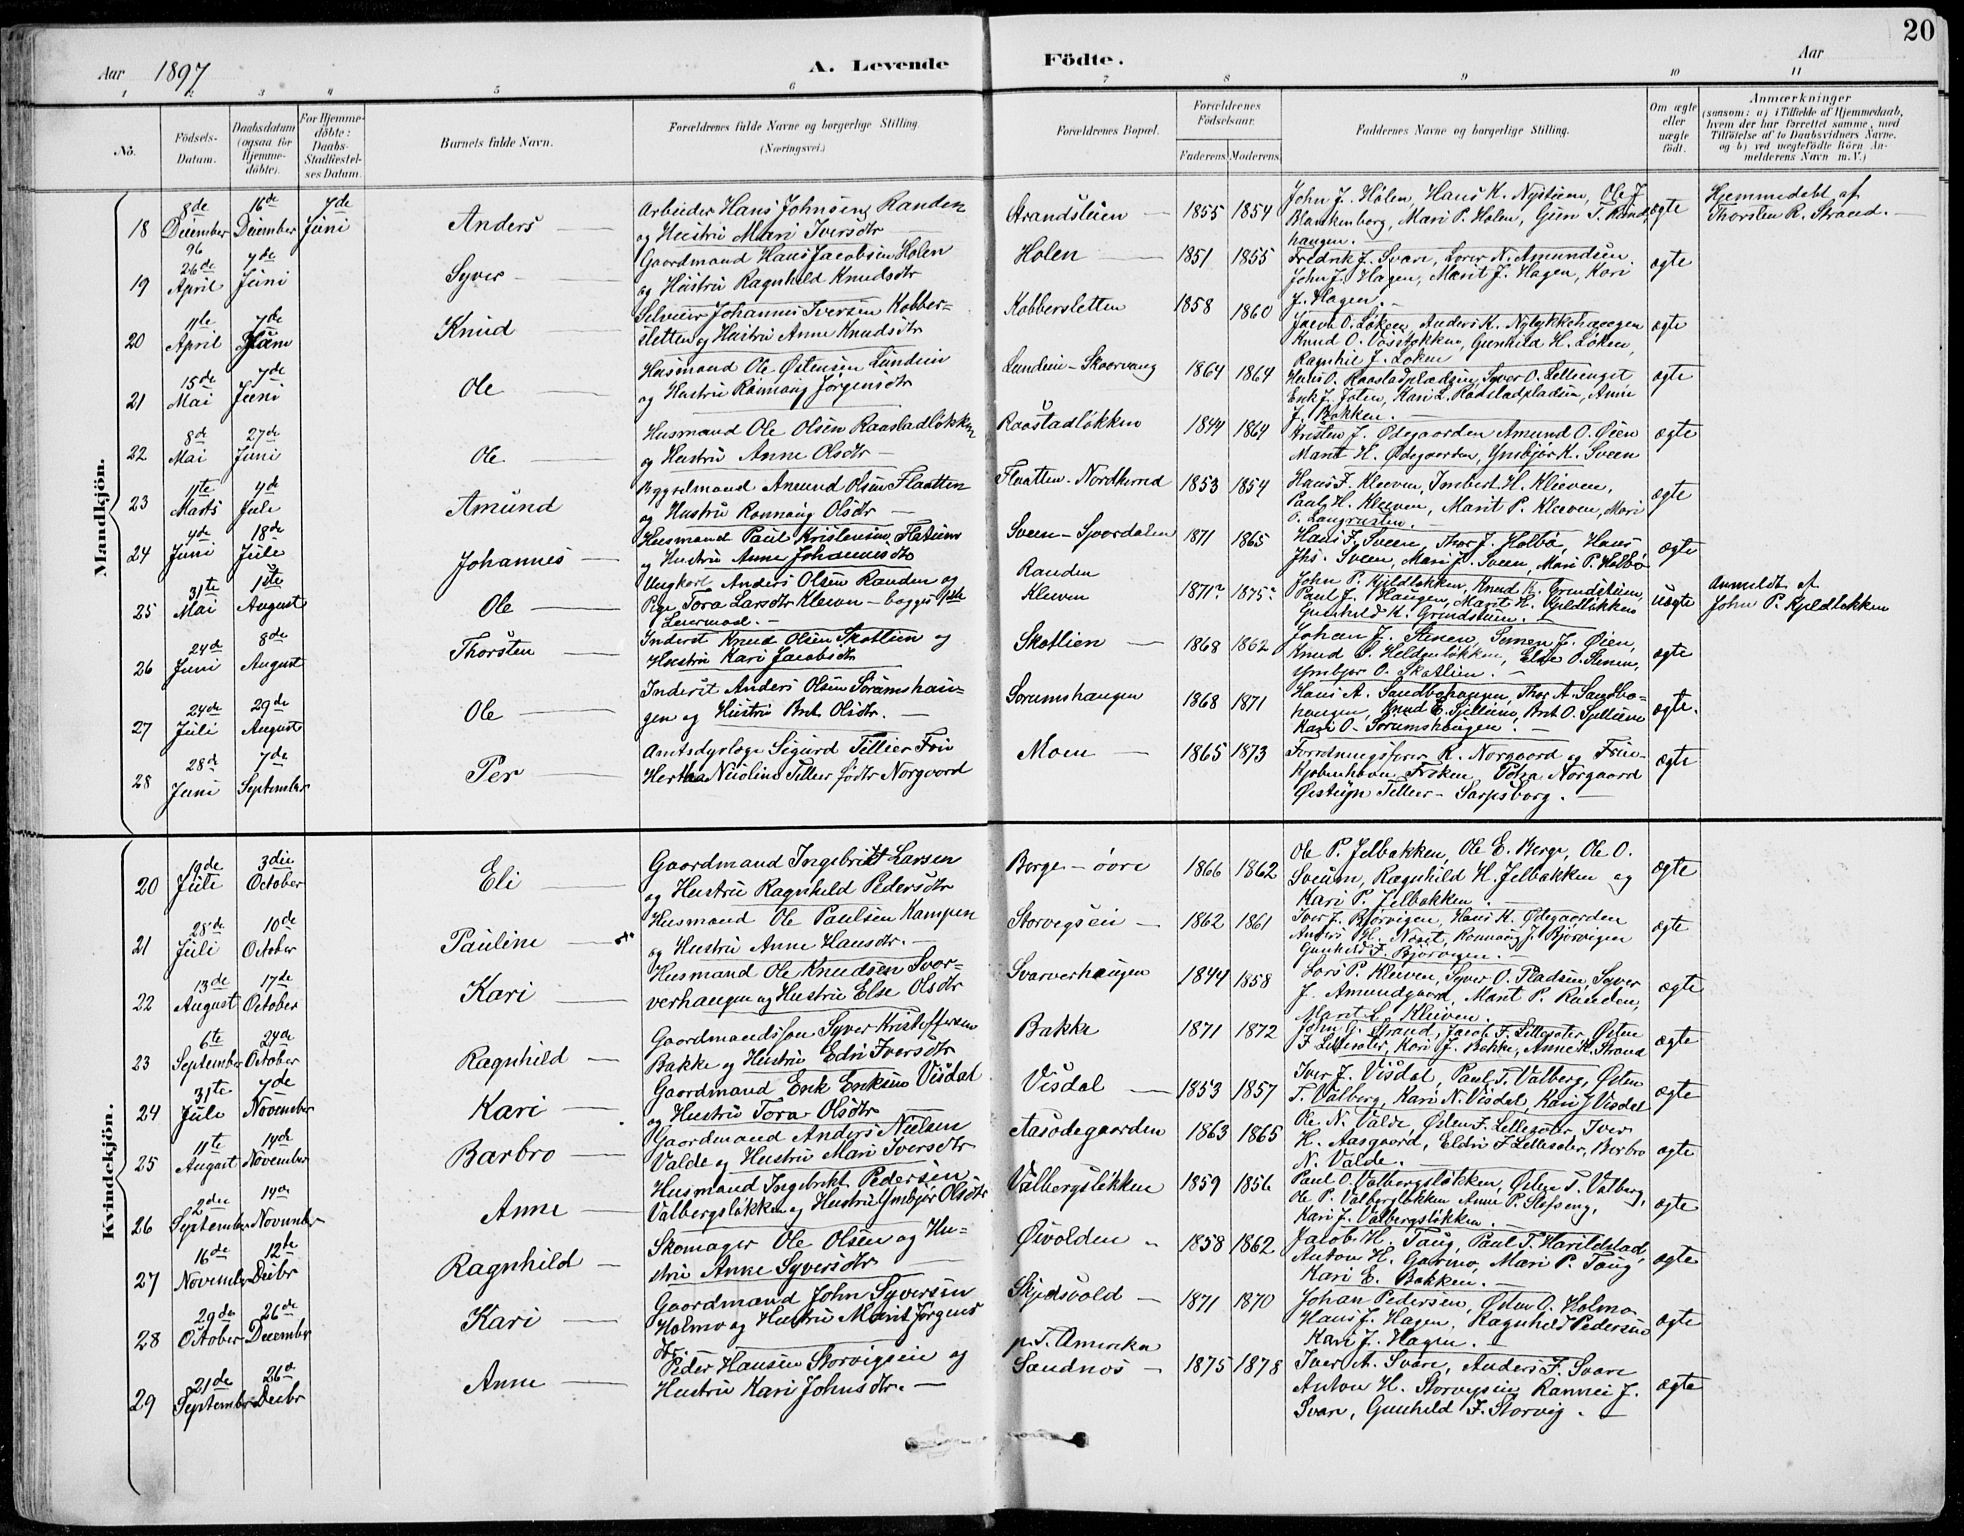 20
Aar 1897
A. Levende Födte.
Aar
1 2 3 4 5 6 7 8 9 10 11
No.
Födsels-Datum.
Daabsdatum (ogsaa for Hjemme-döbte).
For Hjemme-döbte: Daabs-Stadfæstel-ses Datum.
Barnets fulde Navn.
Forældrenes fulde Navne og borgerlige Stilling.
(Næringsvei.)
Forældrenes Bopæl.
Forældrenes Födselsaar.
Faderens. Moderens.
Faddernes Navne og borgerlige Stilling.
Om ægte eller uægte födt.
Anmærkninger
(saasom: a) i Tilfælde af Hjemmedaab,
hvem der har forrettet samme, med
Tilföielse af to Daabsvidners Navne,
og b) ved uægtefödte Börn An-
melderens Navn m. V.)
Mandkjön.
18 8de December 96 16de December 7de Juni Anders
Arbeider Hans Johnsen Randen
og Hustru Mari Iversdtr
Strandsleien 1855 1854
John J. Holen, Hans K. Nystuen, Ole J.
Blankenberg, Mari P. Holen,
haugen.
ægte
Hjemmedøbt af
Thorsten R. Strand.
19 26de April 7de Juni Syver
Gaardmand Hans Jacobsen Holen
og Hustru Ragnhild Knudsdtr
Holen 1851 1855
Fredrik J. Svare, Lover N. Amundsen
John J. Hagen, Marit J. Hagen, Kari
J. Hagen.
ægte
20 11te April 7de Juni Knud
Selveier Johannes Iversen Kobber-
sletten og Hustru Anne Knudsdtr
Kobbersletten 1858 1860
Jacob O. Løken, Anders K. Nyløkkehaugen
Knud O. Vossløkken, Gunhild H. Løken,
Ragnhil J. Løken
ægte
21 15de Mai 7de Juni Ole
Husmand Ole Østensen Lundeie
og Hustru Rønnaug Jørgensdtr
Lundeie - Skaarvang 1864 1864
Hans O. Raastadpladsen, Syver O. Lillsinget
Erik J. Joten, Kari L. Radstadpladsen, Anne
J. Bakken.
ægte
22 8de Mai 27de Juni Ole
Husmand Ole Olsen Raastadløkken
og Hustru Anne Olsdtr
Raastadløkken 1844 1864
Kristen J. Ødegaarden Amund O. Øien
Marit H. Ødegaarden, Ymbjør K. Sveen
ægte
23 11te Marts 4de Juli Amund
Bygselmand Amund Olsen Flaatten
og Hustru Rønnaug Olsdtr
Flaatten - Nordherred 1853 1854
Hans F. Kleiven, Imbert H. Kleiven,
Paul H. Kleiven, Marit P. Kleiven, Mari
O. Langrusten.
ægte
24 4de Juni 18de Juli Johannes
Husmand Paul Kristensen Flatum
og Hustru Anne Johannesdtr
Sveen - Sjoardalen 1871 1865
Hans F. Sveen, Thor J. Holbø, Hans
Jhs. Sveen, Mari J. Sveen, Mari P. Holbø
ægte
25 31te Mai 1ste August Ole
Ungkarl Anders Olsen Randen og
Pige Tora Larsdtr Kleiven - begges 1ste
Leiermaal.
Randen
Kleiven 1871 1875
John P. Kjeldløkken, Knud K. Grindstuen,
Paul J. Haugen, Marit H. Kjeldløkken
Gunhild K. Grindstuen.
uægte
Anmeldt af
John P. Kjeldløkken
26 24de Juni 8de August Thorsten
Inderst Knud Olsen Skotlien og
Hustru Kari Jacobsdtr
Skotlien 1868 1862
Johan J. Stenen, Semen J. Øien,
Knud P. Heldenløkken, Else O. Stenen,
Ymbjør O. Skotlien.
ægte
27 24de Juli 29de August Ole
Inderst Anders Olsen Sorumshau-
gen og Hustru Brit Olsdtr.
Sorumshaugen 1868 1871
Hans A. Sandbohaugen, Thor A. Sandbo-
haugen, Knud E. Sjellien, Brit O. Sjellien
Kari O. Sorumshaugen.
ægte.
28 28de Juni 7de September Per
Amtsdyrlæge Sigurd Tillier Fru
Hertha Nicoline Tillier født Norgaard
Moen 1865 1873
Forretningsfører K. Norgaard og Frue
Kjøbenhavn, Frøken Petra Norgaard
Øistein Tillier - Sarpsborg.
ægte
Kvindekjön.
20 19de Juli 3die October Eli
Gaardmand Ingebrigt Larsen
og Hustru Ragnhild Pedersdtr
Berge - øvre 1866 1862
Ole P. Jelbakken, Ole E. Berge, Ole O.
Sveum, Ragnhild H. Jelbakken og
Kari P. Jelbakken.
ægte
21 28de Juli 10de October Pauline
Husmand Ole Paulsen Kampen
og Hustru Anne Hansdtr.
Storvigseie 1862 1861
Iver J. Bjørvigen, Hans K. Ødegaarden
Anders H. Noset, Rønnaug J. Bjørvigen
Gunhild F. Bjørvigen.
ægte
22 13de August 17de October Kari
Husmand Ole Knudsen Svar-
verhaugen og Hustru Else Olsdtr
Svarverhaugen 1844 1858
Lars P. Kleiven, Syver O. Pladsen, Syver
J. Amundgaard, Marit P. Randen,
Marit L. Kleiven.
ægte
23 6te September 24de October Ragnhild
Gaardmandssøn Syver Kristoffersen
Bakke og Hustru Edri Iversdtr
Bakke 1871 1872
John G. Strand, Jacob F. Lillesæter, Østen
F. Lillesæter, Kari J. Bakke, Anne K. Strand
ægte
24 31te Juli 7de November Kari
Gaardmand Erik Eriksen Visdal
og Hustru Tora Olsdtr
Visdal 1853 1857
Iver J. Visdal, Paul T. Valberg, Østen
T. Valberg, Kari N. Visdal, Kari J. Visdal
ægte
25 11te August 14de November Barbro
Gaardmand Anders Nielsen
Valde og Hustru Mari Iversdtr
Aasødegaarden 1863 1865
Ole N. Valde, Østen F. Lillesæter, Iver
H. Aasgaard, Eldri F. Lillesæter, Barbro
N. Valde.
ægte
26 2den September 14de November Anne
Husmand Ingebrikt Pedersen
Valbergsløkken og Hustru Ymbjør Olsdtr
Valbergsløkken 1859 1856
Paul O. Valbergsløkken, Østen T. Valberg,
Ole P. Valbergsløkken, Anne P. Slefseng,
Kari J. Valbergsløkken.
ægte
27 16de November 12te Decbr Ragnhild
Skomager Ole Olsen og Hu-
stru Anne Syversdtr
Øivolden 1858 1862
Jacob H. Taug, Paul T. Harildstad,
Anton H. Garmo, Mari P. Taug
Kari E. Bakken.
ægte
28 29de October 26de December Kari
Gaardmand John Syversen
Holmo og Hustru Marit Jørgens
dtr.
Skjedsvold 1871 1870
Johan Pedersen, Østen O. Holmo
Hans J. Hagen, Ragnhild Pedersen
Kari J. Hagen.
ægte
29 21de September 26de Decbr Anne
Peder Hansen Storvigseie og
Hustru Kari Johnsdtr.
p. T. Amerika
Sandnes 1875 1878
Iver A. Svare, Anders F. Svare
Anton H. Storvigseie, Rannei J.
Svare, Gunhild F. Storvig.
ægte